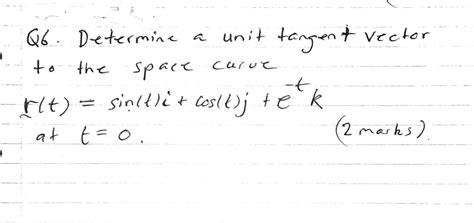 Q6. Determine a unit tangent vector
to the space curve
r(t) = sin(t)i + cos(t)j + e^-t k
at t = 0.
(2 marks).